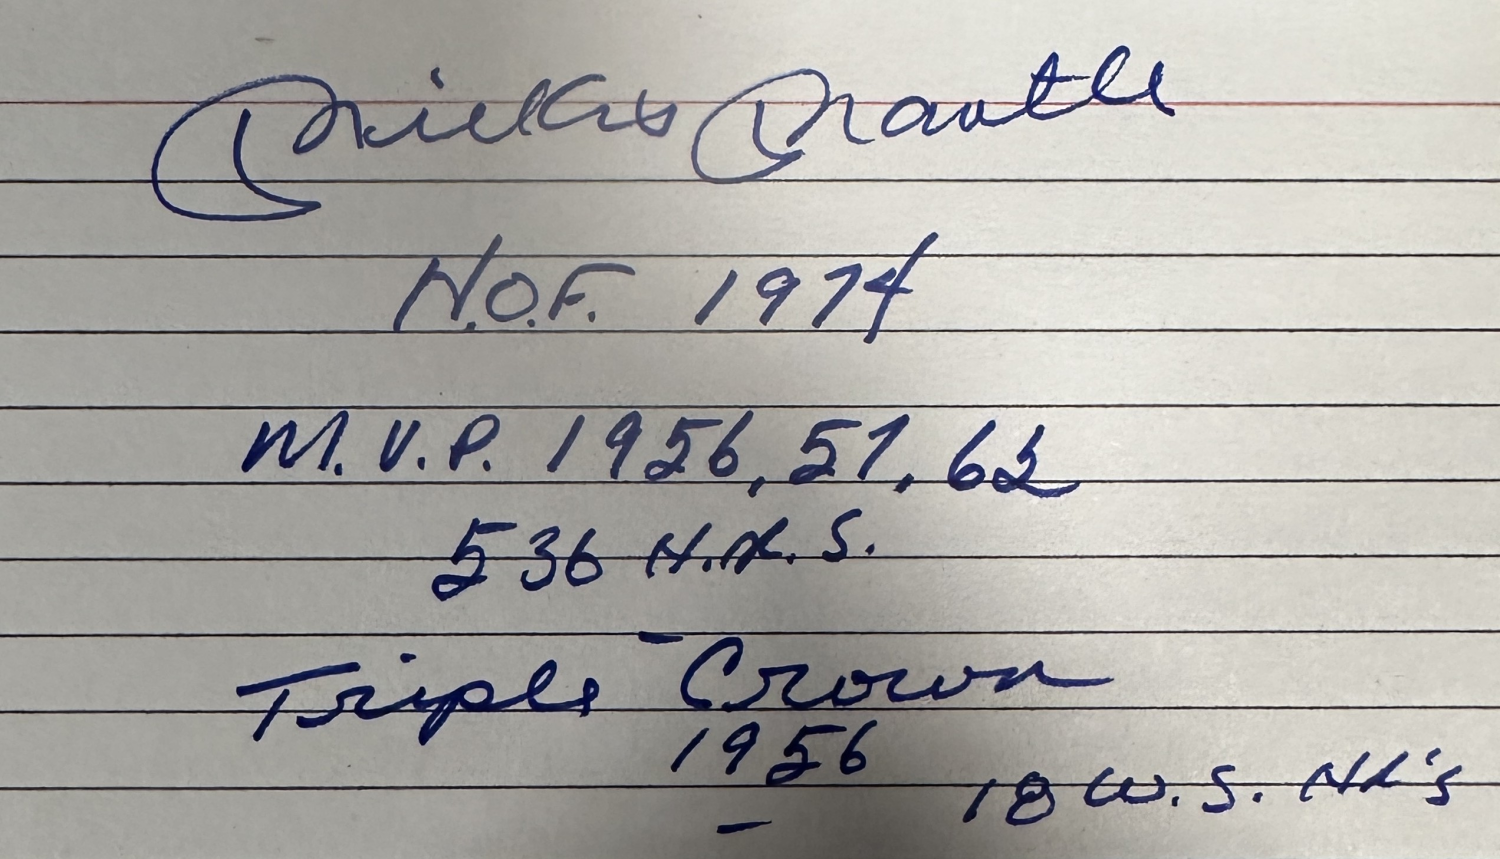 Mickey Mantle
H.O.F. 1974
M.V.P. 1956, 57, 62
536 H.R.S.
Triple Crown
1956
18 W.S. HR's